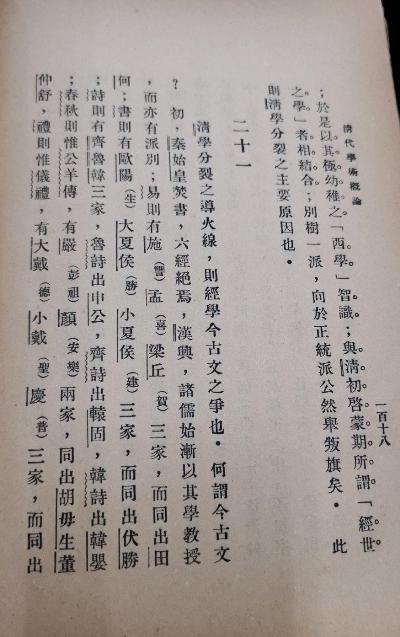 清代學術概論
一百十八
；於是以其極幼稚之「西學」智識；與清初啓蒙期所謂「經世
之學」者相結合；別樹一派，向於正統派公然舉叛旗矣。此
則清學分裂之主要原因也。
二十一
清學分裂之導火線，則經學今古文之爭也。何謂今古文
？初，秦始皇焚書，六經絕焉，漢興，諸儒始漸以其學教授
，而亦有派別；易則有施（讐）孟（喜）梁丘（賀）三家，而同出田
何；書則有歐陽（生）大夏侯（勝）小夏侯（建）三家，而同出伏勝
；詩則有齊魯韓三家，魯詩出申公，齊詩出轅固，韓詩出韓嬰
；春秋則惟公羊傳，有嚴（彭祖）顏（安樂）兩家，同出胡毋生董
仲舒，禮則惟儀禮，有大戴（德）小戴（聖）慶（普）三家，而同出